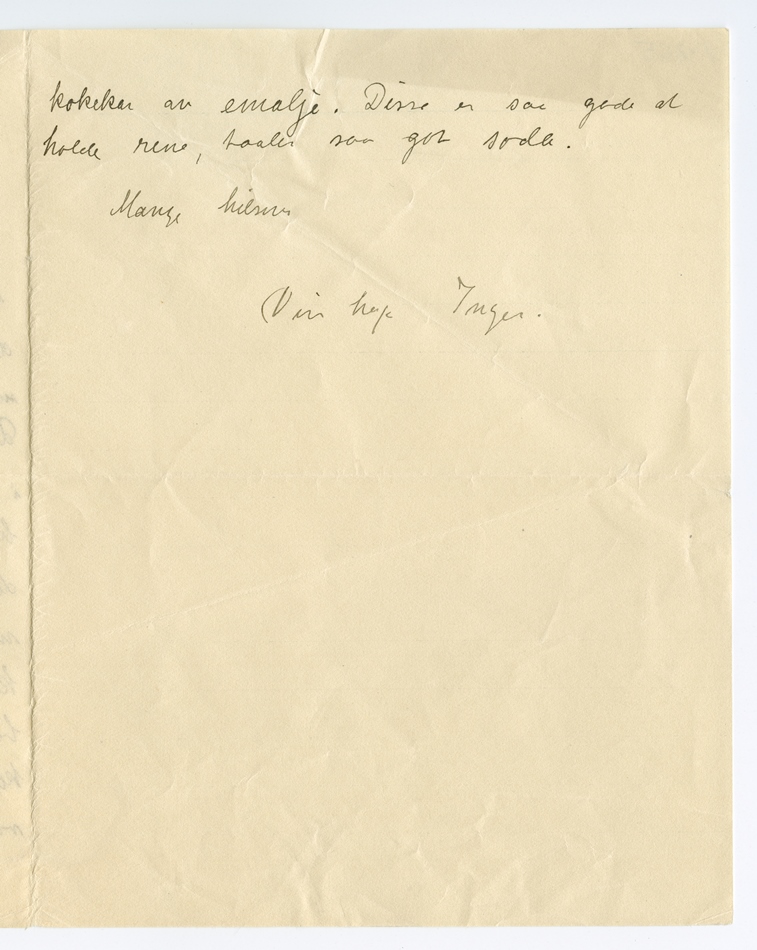 kokekar av emalje. Disse er saa gode at
holde rene, taaler saa got soda.
Mange hilsener
Din Inger.